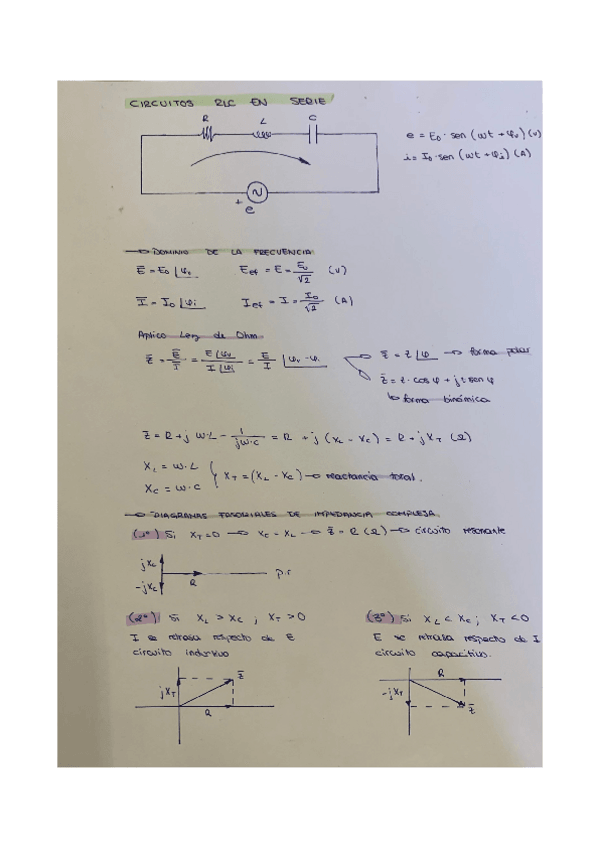 CIRCUITOS RLC EN SERIE
R L C
e = E₀ · sen (wt + φᵥ) (v)
i = I₀ · sen (wt + φᵢ) (A)
+ e
→ DOMINIO DE LA FRECUENCIA
Ē = E₀ ∟φᵥ Eef = E = E₀/√2 (V)
Ī = I₀ ∟φi Ief = I = I₀/√2 (A)
Aplico Ley de Ohm
z̄ = Ē/Ī = E∟φᵥ / I∟φi = E/I ∟φᵥ - φi
z̄ = z ∟φ → forma polar
z̄ = z · cos φ + j z sen φ
↳ forma binómica
z̄ = R + j w·L - 1/(jw·c) = R + j (X_L - X_C) = R + j X_T (Ω)
X_L = w · L
X_C = w · C
} X_T = (X_L - X_C) → reactancia total.
→ DIAGRAMAS FASORIALES DE IMPEDANCIA COMPLEJA
(1º) Si X_T = 0 → X_C = X_L → z̄ = R (Ω) → circuito resonante
jX_L
-jX_C
R
p.r
(2º) Si X_L > X_C ; X_T > 0
I se retrasa respecto de E
circuito inductivo
jX_T z̄
R
(3º) Si X_L < X_C ; X_T < 0
E se retrasa respecto de I
circuito capacitivo.
R
-jX_T
z̄